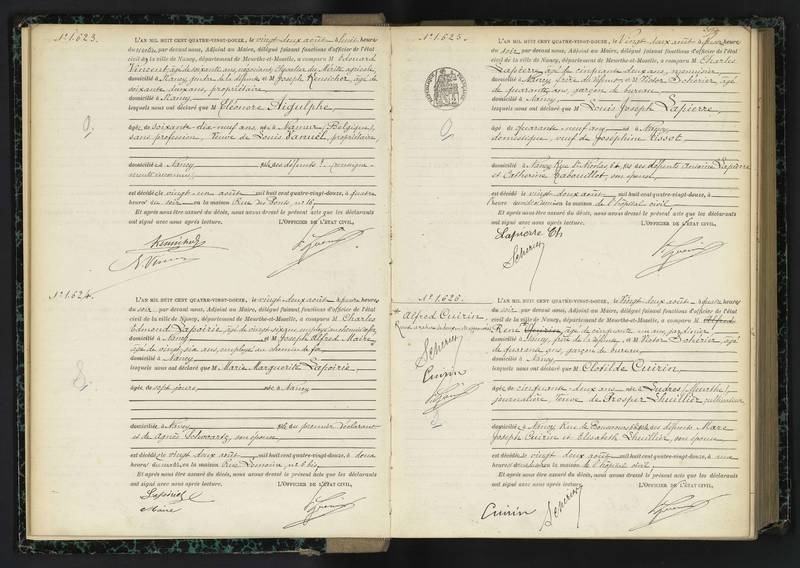 N° 1.623.
L'AN MIL HUIT CENT QUATRE-VINGT-DOUZE, le vingt deux août à huit heure
du matin, par devant nous, Adjoint au Maire, délégué faisant fonctions d'officier de l'état
civil de la ville de Nancy, département de Meurthe-et-Moselle, a comparu M Edouard
Vincent, âgé de soixante ans, négociant, Chevalier du Mérite agricole,
domicilié à Nancy, gendre de la défunte et M Joseph âgé de
soixante deux ans, propriétaire,
domicilié à Nancy
lesquels nous ont déclaré que M Eléonore Aigulphe,
âgée de soixante-dix-neuf ans, née à Namur (Belgique),
sans profession, Veuve de Louis propriétaire,
domiciliée à Nancy fille des défunts
est décédée le vingt-un août mil huit cent quatre-vingt-douze, à quatre
heures du soir en la maison Rue des Ponts, n° 16,
Et après nous être assuré du décès, nous avons dressé le présent acte que les déclarants
ont signé avec nous après lecture. L'OFFICIER DE L'ÉTAT CIVIL,
N° 1.624.
L'AN MIL HUIT CENT QUATRE-VINGT-DOUZE, le vingt deux août à heures
du soir, par devant nous, Adjoint au Maire, délégué faisant fonctions d'officier de l'état
civil de la ville de Nancy, département de Meurthe-et-Moselle, a comparu M Charles
Edmond Lapoirie, âgé de vingt-six ans, employé au chemin de fer,
domicilié à Nancy et M Joseph Alfred Maire,
âgé de vingt-six ans, employé au chemin de fer,
domicilié à Nancy
lesquels nous ont déclaré que M Marie Marguerite Lapoirie,
âgée de sept jours, née à Nancy
domiciliée à Nancy fille du premier déclarant
et de Agnès Schwartz, son épouse,
est décédée le vingt deux août mil huit cent quatre-vingt-douze, à
heure du en la maison Rue Lemoine, n° 6 bis,
Et après nous être assuré du décès, nous avons dressé le présent acte que les déclarants
ont signé avec nous après lecture. L'OFFICIER DE L'ÉTAT CIVIL,
Lapoirie
Maire
N° 1.625.
L'AN MIL HUIT CENT QUATRE-VINGT-DOUZE, le Vingt deux août à heure
du soir, par devant nous, Adjoint au Maire, délégué faisant fonctions d'officier de l'état
civil de la ville de Nancy, département de Meurthe-et-Moselle, a comparu M Charles
Lapierre, âgé de cinquante deux ans, menuisier,
domicilié à Nancy, frère du défunt et M Victor Schérier, âgé
de quarante ans, garçon de bureau
domicilié à Nancy
lesquels nous ont déclaré que M Louis Joseph Lapierre,
âgé de quarante neuf ans né à Nancy,
domestique, veuf de Joséphine Vissot
domicilié à Nancy, Rue St Nicolas, fils des défunts Antoine Lapierre
et Catherine Rabouillot, son épouse,
est décédé le vingt deux août mil huit cent quatre-vingt-douze, à
heure en la maison de l'hôpital civil,
Et après nous être assuré du décès, nous avons dressé le présent acte que les déclarants
ont signé avec nous après lecture. L'OFFICIER DE L'ÉTAT CIVIL,
Lapierre Ch
N° 1.626.
Alfred Cuirin,
Cuirin
L'AN MIL HUIT CENT QUATRE-VINGT-DOUZE, le Vingt deux août à heures
du soir, par devant nous, Adjoint au Maire, délégué faisant fonctions d'officier de l'état
civil de la ville de Nancy, département de Meurthe-et-Moselle, a comparu M Alfred
René âgé de cinquante un ans, jardinier,
domicilié à Nancy, frère de la défunte, et M Victor Schérier, âgé
de quarante ans, garçon de bureau
domicilié à Nancy
lesquels nous ont déclaré que M Clotilde Cuirin,
âgée de cinquante-deux ans née à Ludres (Meurthe),
journalière, Veuve de Prosper Lhuillier, cultivateur
domiciliée à Nancy, Rue fille des défunts Marc
Joseph Cuirin et Elisabeth Lhuillier, son épouse
est décédée le vingt deux août mil huit cent quatre-vingt-douze, à une
heure en la maison de l'hôpital civil,
Et après nous être assuré du décès, nous avons dressé le présent acte que les déclarants
ont signé avec nous après lecture. L'OFFICIER DE L'ÉTAT CIVIL,
Cuirin